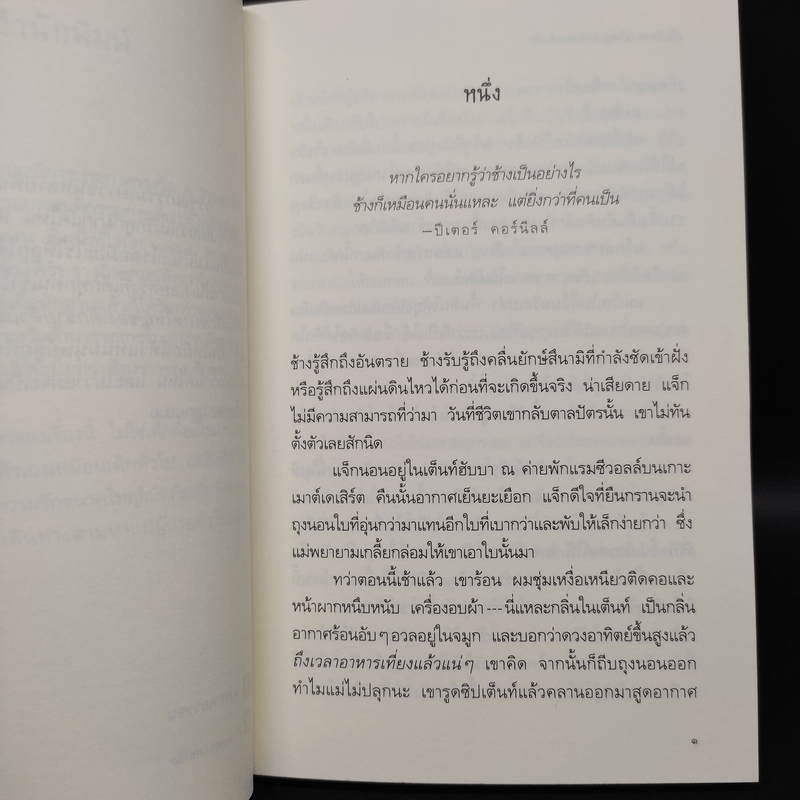 หนึ่ง
หากใครอยากรู้ว่าช้างเป็นอย่างไร
ช้างก็เหมือนคนนั่นแหละ แต่ยิ่งกว่าที่คนเป็น
—ปีเตอร์ คอร์นีลล์
ช้างรู้สึกถึงอันตราย ช้างรับรู้ถึงคลื่นยักษ์สึนามิที่กำลังซัดเข้าฝั่ง
หรือรู้สึกถึงแผ่นดินไหวได้ก่อนที่จะเกิดขึ้นจริง น่าเสียดาย แจ็ก
ไม่มีความสามารถที่ว่ามา วันที่ชีวิตเขากลับตาลปัตรนั้น เขาไม่ทัน
ตั้งตัวเลยสักนิด
แจ็กนอนอยู่ในเต็นท์ฮับบา ณ ค่ายพักแรมซีวอลล์บนเกาะ
เมาต์เดเสิร์ต คืนนั้นอากาศเย็นยะเยือก แจ็กดีใจที่ยืนกรานจะนำ
ถุงนอนใบที่อุ่นกว่ามาแทนอีกใบที่เบากว่าและพับให้เล็กง่ายกว่า ซึ่ง
แม่พยายามเกลี้ยกล่อมให้เขาเอาใบนั้นมา
ทว่าตอนนี้เช้าแล้ว เขาร้อน ผมชุ่มเหงื่อเหนียวติดคอและ
หน้าผากหนึบหนับ เครื่องอบผ้า---นี่แหละกลิ่นในเต็นท์ เป็นกลิ่น
อากาศร้อนอับๆ อวลอยู่ในจมูก และบอกว่าดวงอาทิตย์ขึ้นสูงแล้ว
ถึงเวลาอาหารเที่ยงแล้วแน่ๆ เขาคิด จากนั้นก็ถีบถุงนอนออก
ทำไมแม่ไม่ปลุกนะ เขารูดซิปเต็นท์แล้วคลานออกมาสูดอากาศ
๑